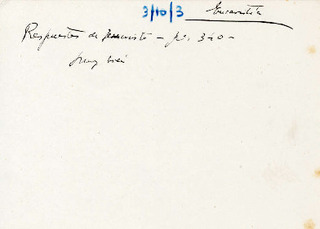 3/10/3
Respuestas de – pº. 340 –
muy bien